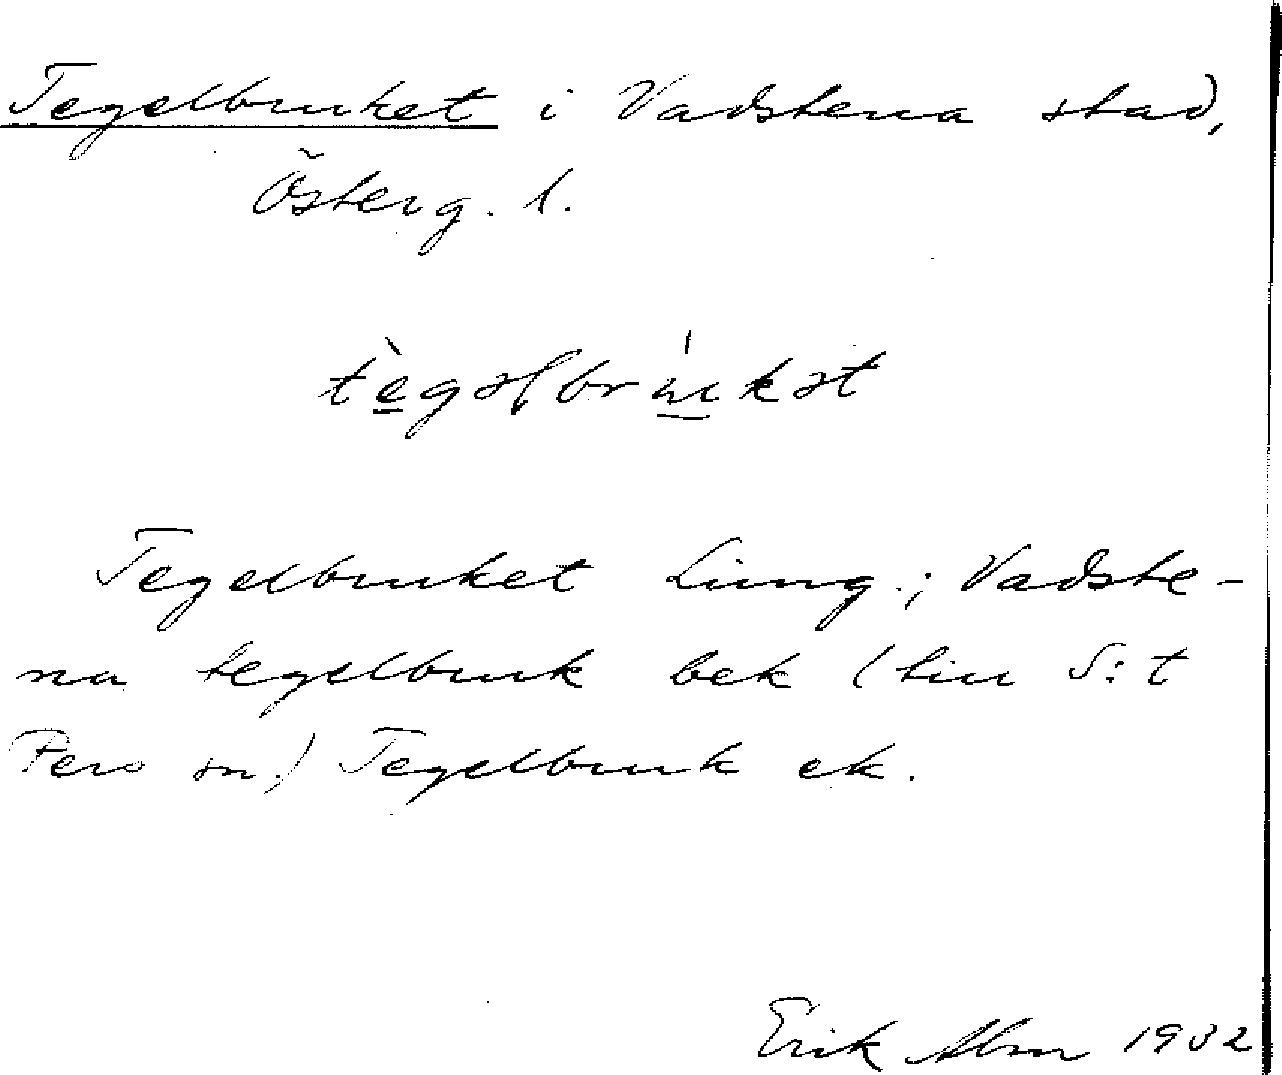 Tegelbruket i Vadstena stad,
Österg. l.
tègəlbru̍kət
Tegelbruket Ljung.; Vadste-
na tegelbruk bek (till S:t
Pers sn.) Tegelbruk ek.
Erik Abm 1932